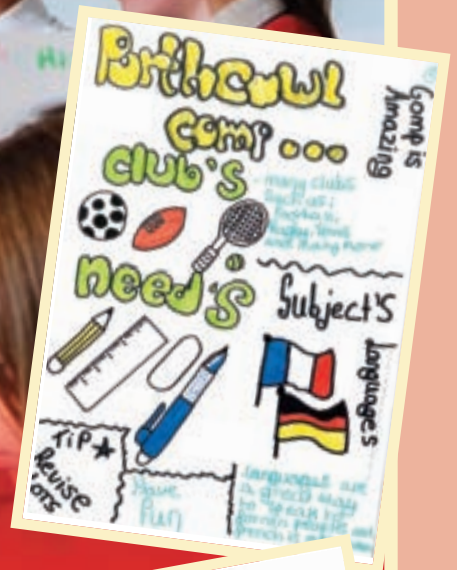 Porthcawl
Comp...
Comp is
Amazing
Club's
- many clubs
such as:
football,
Rugby, Tennis
need's
Subject's
Languages
TiP
Revise
LOTS
Have
Fun
Languages are
a great way
to speak to